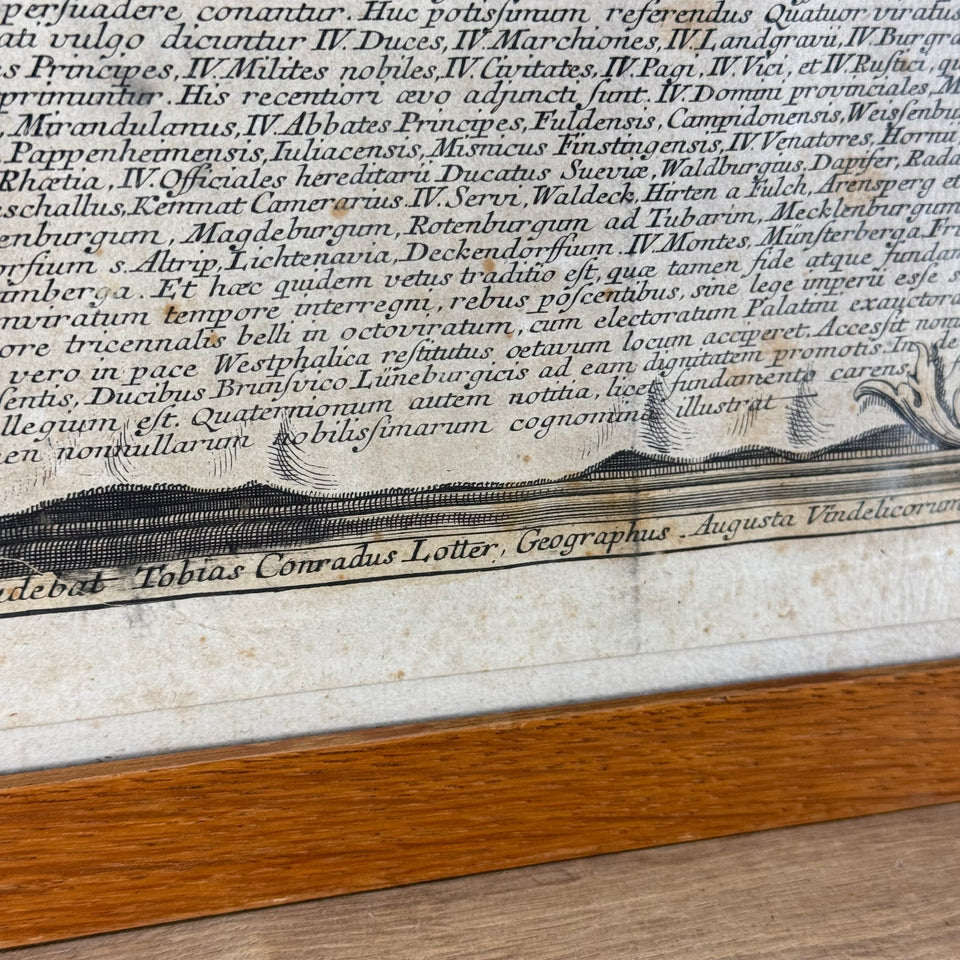 persuadere conantur. Huc potiſsimum referendus Quatuor viratus
ati vulgo dicuntur IV. Duces, IV. Marchiones, IV. Landgravii, IV. Burgra
s Principes, IV. Milites nobiles, IV. Civitates, IV. Pagi, IV. Vici, et IV. Ruſtici, qu
primuntur. His recentiori ævo adjuncti ſunt. IV. Domini provinciales, M
, Mirandulanus, IV. Abbates Principes, Fuldensis, Campidonensis, Weiſſenbu
Pappenheimensis, Iuliacensis, Misnicus Finstingensis, IV. Venatores, Hornii
Rhætia, IV. Officiales hereditarii Ducatus Sueviæ, Waldburgius, Dapifer, Rada
schallus, Kemnat Camerarius. IV. Servi, Waldeck, Hirten a Fulch, Arensperg et
enburgum, Magdeburgum, Rotenburgum ad Tubarim, Mecklenburgum
orſium s. Altrip, Lichtenavia, Deckendorffium. IV. Montes, Münſterberga. Fri
imberga. Et hæc quidem vetus traditio eſt, quæ tamen fide atque fundam
nviratum tempore interregni, rebus poſcentibus, sine lege imperii eſſe s
ore tricennalis belli in octoviratum, cum electoratum Palatini exauctora
vero in pace Westphalica reſtitutus octavum locum acciperet. Acceſſit nonu
ſentis, Ducibus Brunſvico Lüneburgicis ad eam dignitatem promotis. In de
llegium eſt. Quaternionum autem notitia, licet fundamento carens,
men nonnullarum nobiliſsimarum cognomina illustrat
udebat Tobias Conradus Lotter, Geographus. Augusta Vindelicorum